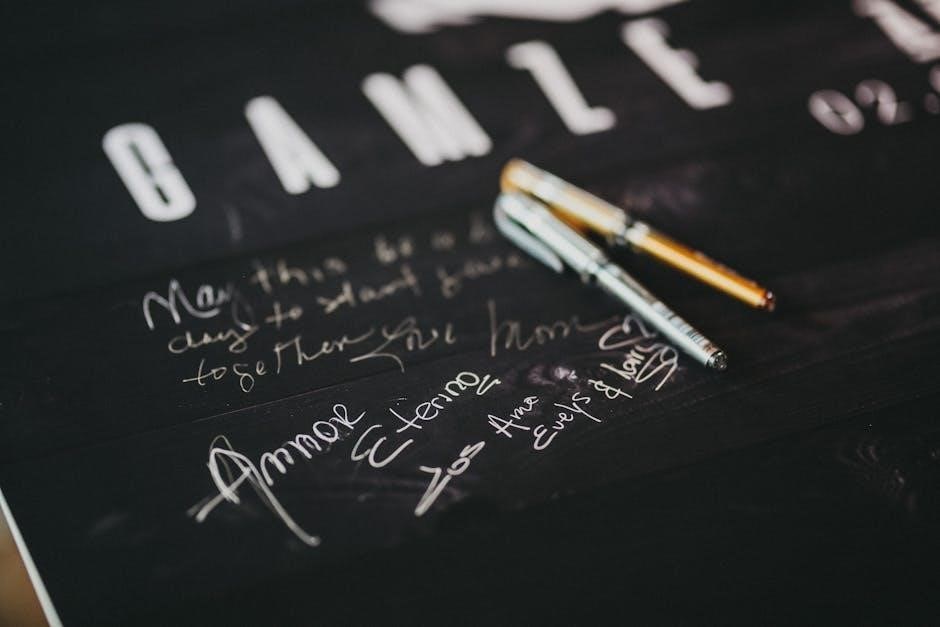 GAMZE
02.
May this be a
day to start
together Love Mom
Ammor
Eterno
Los Ama
Evelys &